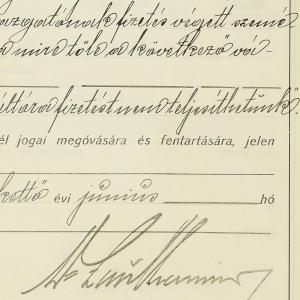 azgatónak fizetés végett szemé
a mire tőle a következő vá-
áltára fizetést nem teljesíthetünk".
él jogai megóvására és fentartására, jelen
kettő évi június hó
Dr